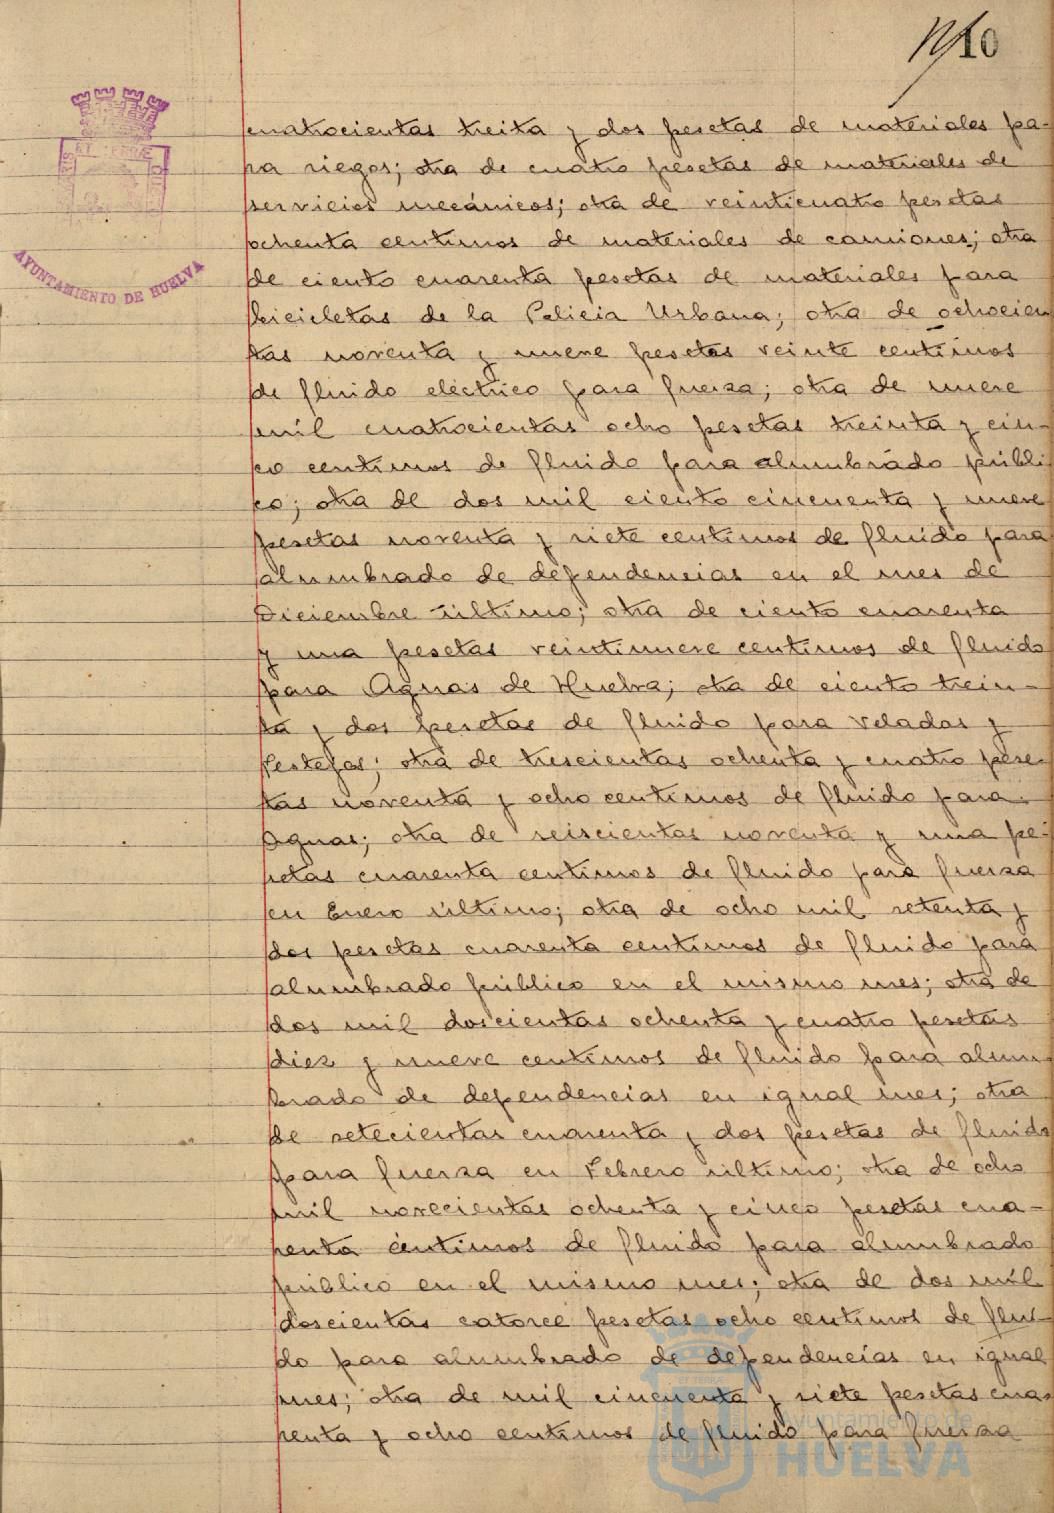 10
cuatrocientas treita y dos pesetas de materiales pa-
ra riegos; otra de cuatro pesetas de materiales de
servicios mecánicos; otra de veinticuatro pesetas
ochenta centimos de materiales de camiones; otra
de ciento cuarenta pesetas de materiales para
bicicletas de la Policia Urbana; otra de ochocien
tas noventa y nueve pesetas veinte centimos
de fluido eléctrico para fuerza; otra de nueve
mil cuatrocientas ocho pesetas treinta y cin-
co centimos de fluido para alumbrado públi
co; otra de dos mil ciento cincuenta y nueve
pesetas noventa y siete centimos de fluido para
alumbrado de dependencias en el mes de
Diciembre último; otra de ciento cuarenta
y una pesetas veintinueve centimos de fluido
para Aguas de Huelva; otra de ciento trein-
ta y dos pesetas de fluido para veladas y
festejos; otra de trescientas ochenta y cuatro pese-
tas noventa y ocho centimos de fluido para
Aguas; otra de seiscientas noventa y una pe-
setas cuarenta centimos de fluido para fuerza
en Enero último; otra de ocho mil setenta y
dos pesetas cuarenta centimos de fluido para
alumbrado público en el mismo mes; otra de
dos mil doscientas ochenta y cuatro pesetas
diez y nueve centimos de fluido para alum-
brado de dependencias en igual mes; otra
de setecientas cuarenta y dos pesetas de fluido
para fuerza en Febrero último; otra de ocho
mil novecientas ochenta y cinco pesetas cua-
renta centimos de fluido para alumbrado
público en el mismo mes; otra de dos mil
doscientas catorce pesetas ocho centimos de flui-
do para alumbrado de dependencias en igual
mes; otra de mil cincuenta y siete pesetas cua-
renta y ocho centimos de fluido para fuerza
AYUNTAMIENTO DE HUELVA
Ayuntamiento de
HUELVA